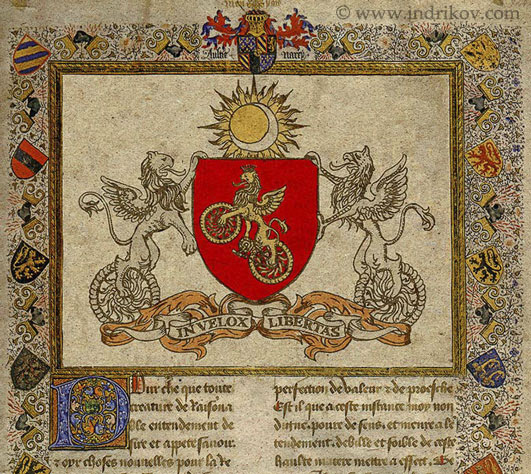 © www.indrikov.com
Narey
IN VELOX LIBERTAS
Pour che que toute
creature de Raisona
ble entendement de
sire et appete savoir
oyr choses nouvelles pour la Re
perfection de valeur & de proesche
Est il que a ceste instance moy non
digne, povre de sens, et mentre a le
tendement, debille et foible de ceste
haulte matere mettre a effect.